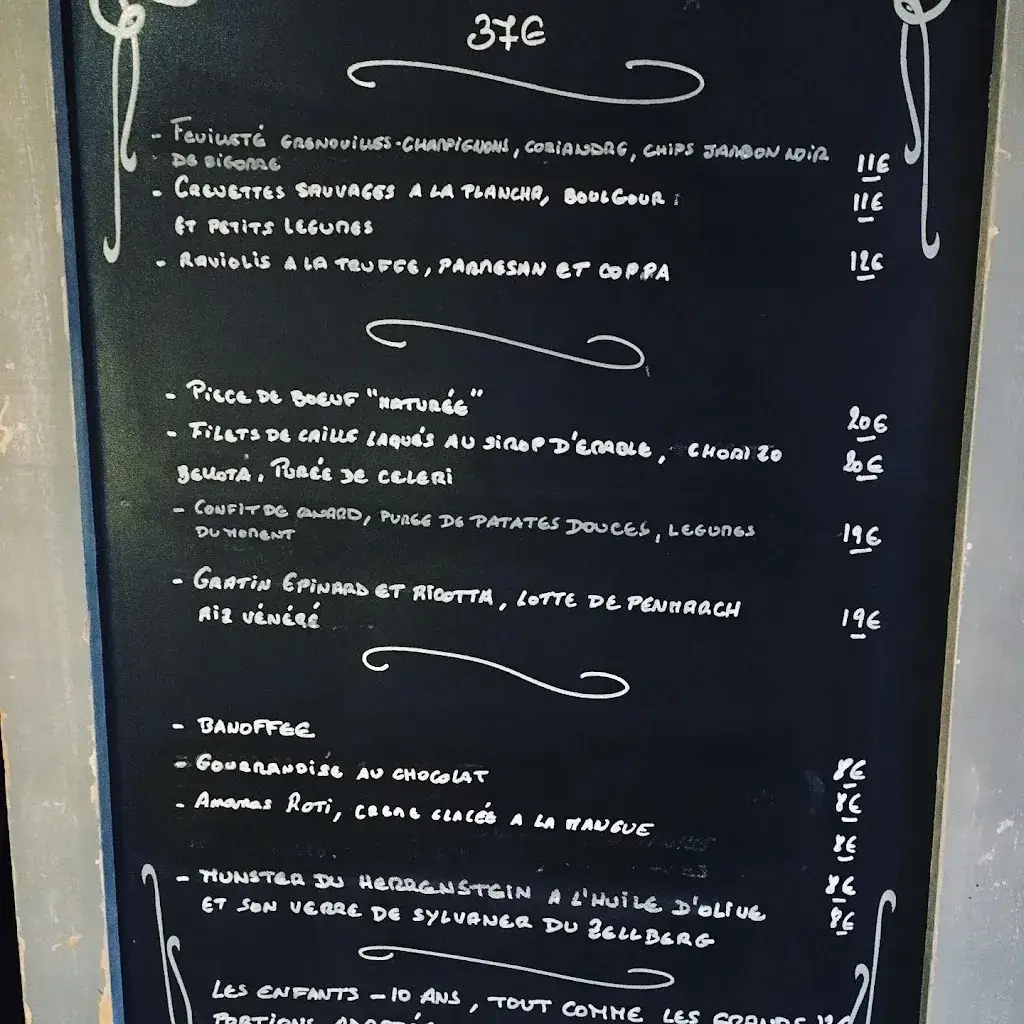 37€
- FEUILLETÉ GRENOUILLES-CHAMPIGNONS, CORIANDRE, CHIPS JAMBON NOIR
DE BIGORRE 11€
- CREVETTES SAUVAGES A LA PLANCHA, BOULGOUR 11€
ET PETITS LEGUMES
- RAVIOLIS A LA TRUFFE, PARMESAN ET COPPA 12€
- PIECE DE BOEUF "MATURÉE" 20€
- FILETS DE CAILLE LAQUÉS AU SIROP D'ERABLE, CHORIZO 20€
BELLOTA, PURÉE DE CELERI
- CONFIT DE CANARD, PUREE DE PATATES DOUCES, LEGUMES 19€
DU MOMENT
- GRATIN EPINARD ET RICOTTA, LOTTE DE PENMARCH
RIZ VÉNÉRÉ 19€
- BANOFFEE
- GOURMANDISE AU CHOCOLAT 8€
- ANANAS ROTI, CREME GLACÉE A LA MANGUE 8€
8€
- MUNSTER DU HERRENSTEIN A L'HUILE D'OLIVE 8€
ET SON VERRE DE SYLVANER DU ZELLBERG 8€
LES ENFANTS -10 ANS, TOUT COMME LES GRANDS
PORTIONS